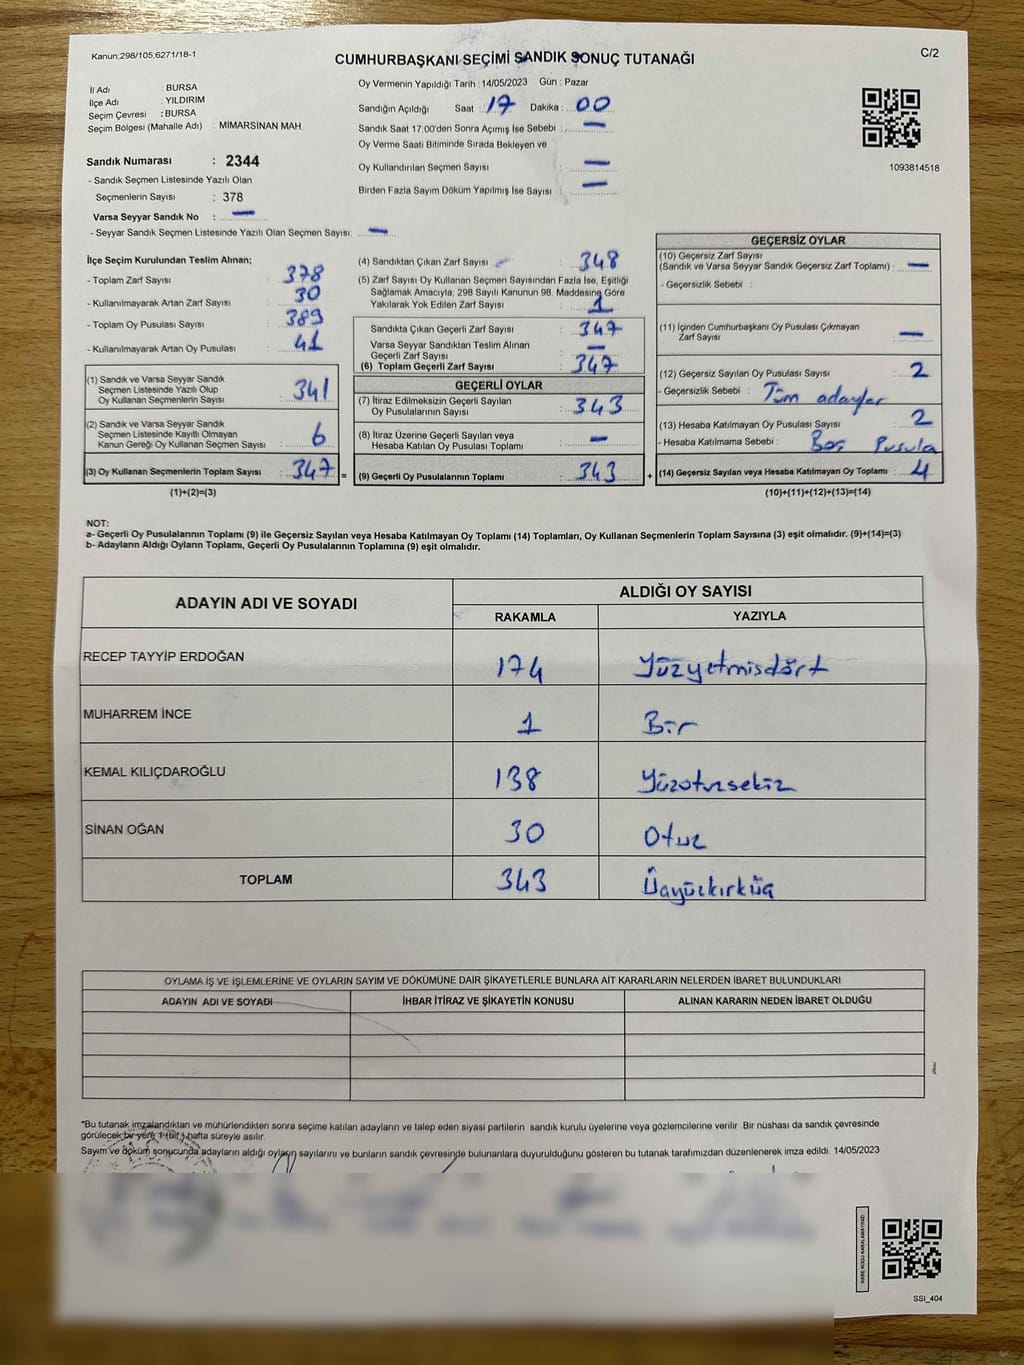 Kanun;298/105,6271/18-1
C/2
CUMHURBAŞKANI SEÇİMİ SANDIK SONUÇ TUTANAĞI
İl Adı : BURSA
İlçe Adı : YILDIRIM
Seçim Çevresi : BURSA
Seçim Bölgesi (Mahalle Adı) : MİMARSİNAN MAH.
Sandık Numarası : 2344
- Sandık Seçmen Listesinde Yazılı Olan
Seçmenlerin Sayısı : 378
Varsa Seyyar Sandık No : —
- Seyyar Sandık Seçmen Listesinde Yazılı Olan Seçmen Sayısı: —
Oy Vermenin Yapıldığı Tarih : 14/05/2023 Gün : Pazar
Sandığın Açıldığı Saat : 17 Dakika : 00
Sandık Saat 17.00'den Sonra Açımış İse Sebebi : —
Oy Verme Saati Bitiminde Sırada Bekleyen ve
Oy Kullandırılan Seçmen Sayısı : —
Birden Fazla Sayım Döküm Yapılmış İse Sayısı : —
1093814518
İlçe Seçim Kurulundan Teslim Alınan;
- Toplam Zarf Sayısı : 378
- Kullanılmayarak Artan Zarf Sayısı : 30
- Toplam Oy Pusulası Sayısı : 389
- Kullanılmayarak Artan Oy Pusulası : 41
(1) Sandık ve Varsa Seyyar Sandık
Seçmen Listesinde Yazılı Olup
Oy Kullanan Seçmenlerin Sayısı : 341
(2) Sandık ve Varsa Seyyar Sandık
Seçmen Listesinde Kayıtlı Olmayan
Kanun Gereği Oy Kullanan Seçmen Sayısı : 6
(3) Oy Kullanan Seçmenlerin Toplam Sayısı : 347 =
(1)+(2)=(3)
(4) Sandıktan Çıkan Zarf Sayısı : 348
(5) Zarf Sayısı Oy Kullanan Seçmen Sayısından Fazla İse, Eşitliği
Sağlamak Amacıyla; 298 Sayılı Kanunun 98. Maddesine Göre
Yakılarak Yok Edilen Zarf Sayısı : 1
Sandıkta Çıkan Geçerli Zarf Sayısı : 347
Varsa Seyyar Sandıktan Teslim Alınan
Geçerli Zarf Sayısı : —
(6) Toplam Geçerli Zarf Sayısı : 347
GEÇERLİ OYLAR
(7) İtiraz Edilmeksizin Geçerli Sayılan
Oy Pusulalarının Sayısı : 343
(8) İtiraz Üzerine Geçerli Sayılan veya
Hesaba Katılan Oy Pusulası Toplamı : —
(9) Geçerli Oy Pusulalarının Toplamı : 343 +
GEÇERSİZ OYLAR
(10) Geçersiz Zarf Sayısı
(Sandık ve Varsa Seyyar Sandık Geçersiz Zarf Toplamı) : —
- Geçersizlik Sebebi :
(11) İçinden Cumhurbaşkanı Oy Pusulası Çıkmayan
Zarf Sayısı : —
(12) Geçersiz Sayılan Oy Pusulası Sayısı : 2
- Geçersizlik Sebebi : Tüm adaylar
(13) Hesaba Katılmayan Oy Pusulası Sayısı : 2
- Hesaba Katılmama Sebebi : Boş Pusula
(14) Geçersiz Sayılan veya Hesaba Katılmayan Oy Toplamı : 4
(10)+(11)+(12)+(13)=(14)
NOT:
a- Geçerli Oy Pusulalarının Toplamı (9) ile Geçersiz Sayılan veya Hesaba Katılmayan Oy Toplamı (14) Toplamları, Oy Kullanan Seçmenlerin Toplam Sayısına (3) eşit olmalıdır. (9)+(14)=(3)
b- Adayların Aldığı Oyların Toplamı, Geçerli Oy Pusulalarının Toplamına (9) eşit olmalıdır.
ADAYIN ADI VE SOYADI ALDIĞI OY SAYISI
RAKAMLA YAZIYLA
RECEP TAYYİP ERDOĞAN 174 Yüzyetmisdört
MUHARREM İNCE 1 Bir
KEMAL KILIÇDAROĞLU 138 Yüzotuzsekiz
SİNAN OĞAN 30 Otuz
TOPLAM 343 Üçyüzkırküç
OYLAMA İŞ VE İŞLEMLERİNE VE OYLARIN SAYIM VE DÖKÜMÜNE DAİR ŞİKAYETLERLE BUNLARA AİT KARARLARIN NELERDEN İBARET BULUNDUKLARI
ADAYIN ADI VE SOYADI İHBAR İTİRAZ VE ŞİKAYETİN KONUSU ALINAN KARARIN NEDEN İBARET OLDUĞU
*Bu tutanak imzalandıktan ve mühürlendikten sonra seçime katılan adayların ve talep eden siyasi partilerin sandık kurulu üyelerine veya gözlemcilerine verilir. Bir nüshası da sandık çevresinde
görülecek bir yere 1 (bir) hafta süreyle asılır.
Sayım ve döküm sonucunda adayların aldığı oyların sayılarını ve bunların sandık çevresinde bulunanlara duyurulduğunu gösteren bu tutanak tarafımızdan düzenlenerek imza edildi. 14/05/2023
KARE KODU KARALAMAYINIZ!
SSI_404